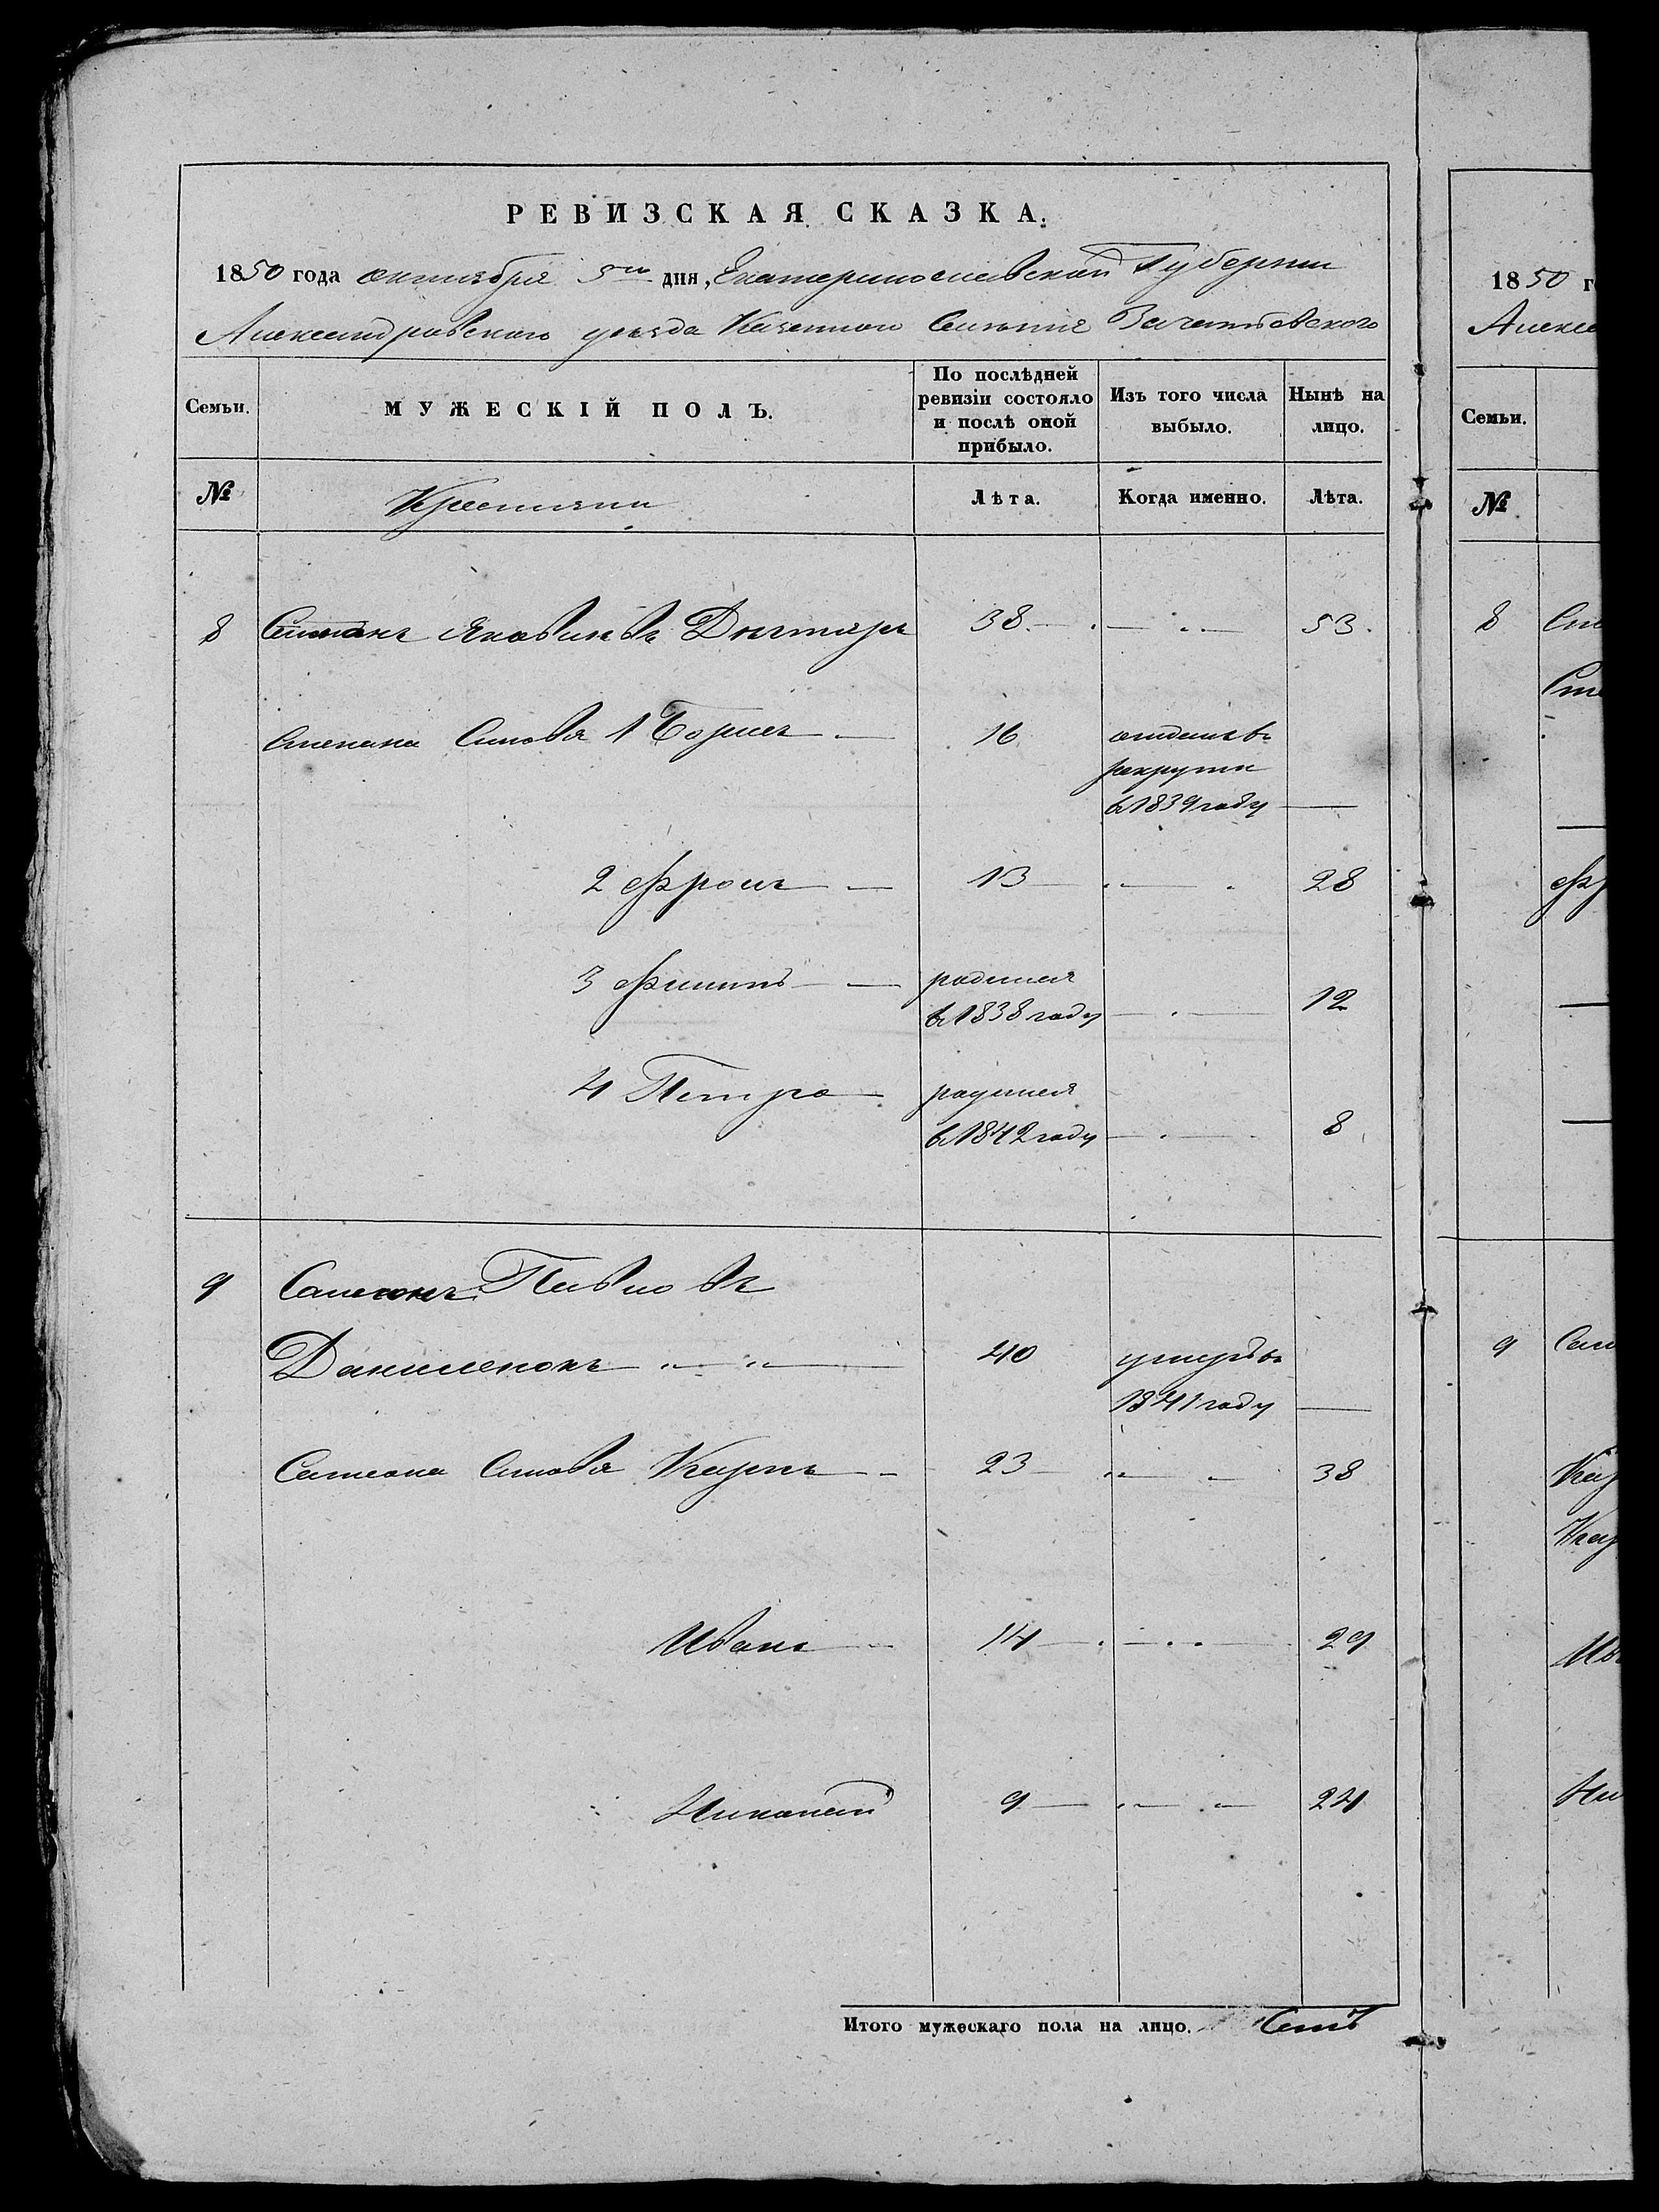 РЕВИЗСКАЯ СКАЗКА.
1850 года октября 5го дня, Екатеринославской Губернии
Александровского уезда Казенного Селения Зачатовского
Семьи. МУЖЕСКІЙ ПОЛЪ. По послѣдней ревизіи состояло и послѣ оной прибыло. Изъ того числа выбыло. Нынѣ на лицо.
№ Крестьяни Лѣта. Когда именно. Лѣта.
8 Степанъ Яковлевъ 38 53.
Степана Сыновья 1 Борисъ 16 отданъ въ
рекруты
въ 1839 году
2 Фролъ 13 28
3 Филипъ родился
въ 1838 году 12
4 Петро родился
въ 1842 году 8
9 Самсонъ Павловъ
Даниленокъ 40 умеръ въ
1841 году
Самсона Сыновья Карпъ 23 38
Иванъ 14 29
Николай 9 24
Итого мужескаго пола на лицо. Семъ
1850 г
Алекса
Семьи.
№
8
9